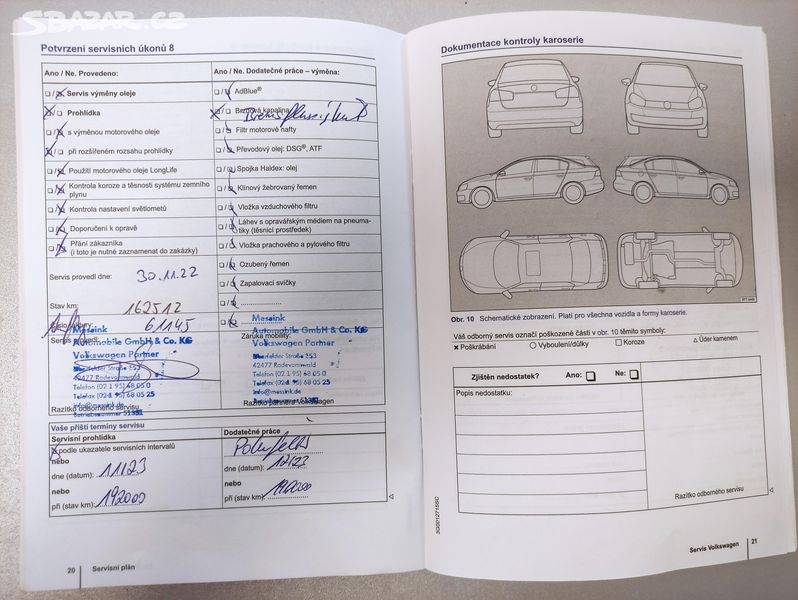 SBAZAR.CZ
Potvrzení servisních úkonů 8
Ano / Ne. Provedeno:
Servis výměny oleje
Prohlídka
s výměnou motorového oleje
při rozšířeném rozsahu prohlídky
Použití motorového oleje LongLife
Kontrola koroze a těsnosti systému zemního
plynu
Kontrola nastavení světlometů
Doporučení k opravě
Přání zákazníka
(i toto je nutné zaznamenat do zakázky)
Servis provedl dne: 30.11.22
Stav km: 162512
61145
Servis provedl:
Messink
Automobile GmbH & Co. KG
Volkswagen Partner
42477 Radevormwald
Telefon (02 1 95) 68 05 0
Telefax (02 1 95) 68 05 25
info@messink.de
Razítko odborného servisu
Ano / Ne. Dodatečné práce – výměna:
AdBlue®
Brzdová kapalina
Filtr motorové nafty
Převodový olej: DSG®, ATF
Spojka Haldex: olej
Klínový žebrovaný řemen
Vložka vzduchového filtru
Láhev s opravářským médiem na pneuma-
tiky (těsnicí prostředek)
Vložka prachového a pylového filtru
Ozubený řemen
Zapalovací svíčky
Záruka mobility:
Messink
Automobile GmbH & Co. KG
Volkswagen Partner
42477 Radevormwald
Telefon (02 1 95) 68 05 0
Telefax (02 1 95) 68 05 25
info@messink.de
Razítko partnera Volkswagen
Vaše příští termíny servisu
Servisní prohlídka
podle ukazatele servisních intervalů
nebo
dne (datum): 11/23
nebo
při (stav km): 192000
Dodatečné práce
dne (datum): 12/23
nebo
při (stav km): 192000
20 Servisní plán
Dokumentace kontroly karoserie
Obr. 10 Schematické zobrazení. Platí pro všechna vozidla a formy karoserie.
Váš odborný servis označí poškozené části v obr. 10 těmito symboly:
× Poškrábání ○ Vyboulení/důlky □ Koroze △ Úder kamenem
Zjištěn nedostatek? Ano: Ne:
Popis nedostatku:
Razítko odborného servisu
3G0012715SC
Servis Volkswagen 21